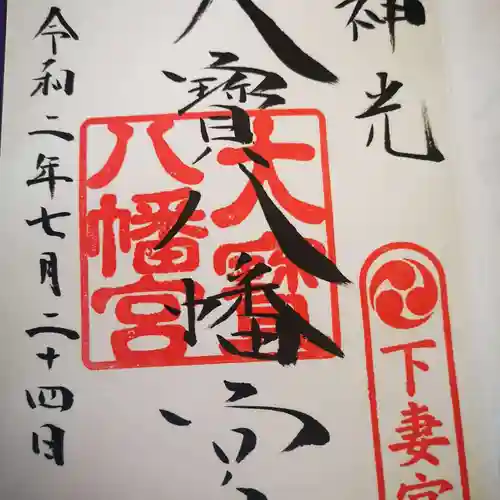 神光
下妻宮
大寶八幡宮
大寶
八幡宮
令和二年七月二十四日